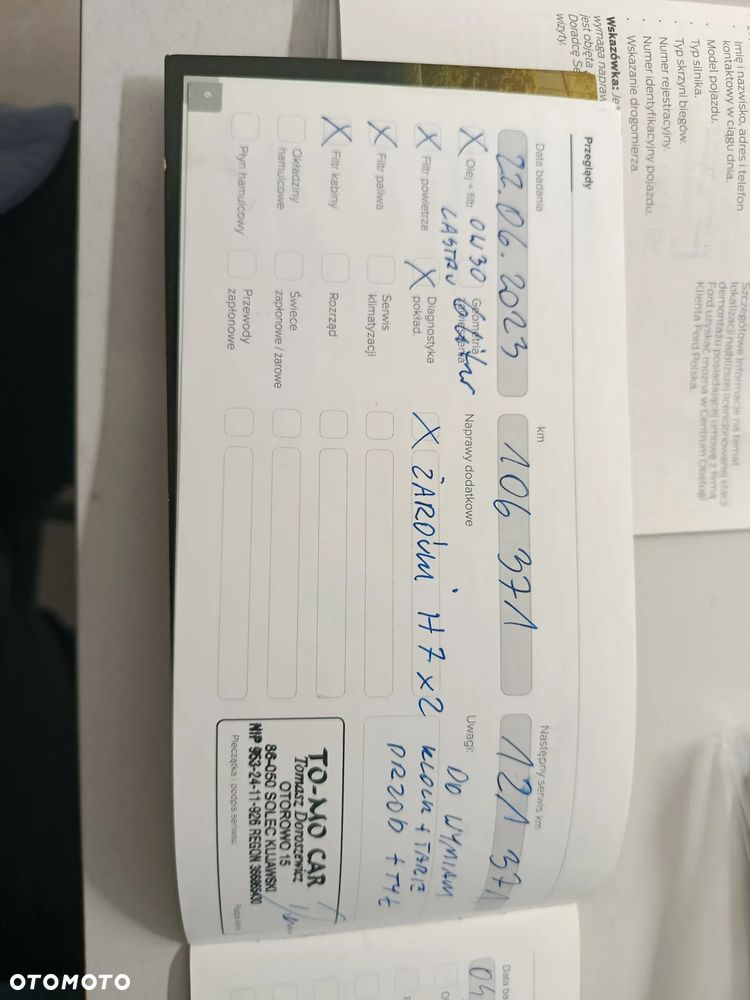 Imię i nazwisko, adres i telefon
kontaktowy w ciągu dnia.
Model pojazdu.
Typ silnika.
Typ skrzyni biegów.
Numer rejestracyjny.
Numer identyfikacyjny pojazdu.
Wskazanie drogomierza.
Wskazówka:
wymaga napraw
jest objęta
Doradcę Se
wizyty.
Szczegółowe informacje na temat
lokalizacji najbliższej licencjonowanej stacji
demontażu posiadającej umowę z firmą
Ford uzyskać można w Centrum Obsługi
Klienta Ford Polska.
Przeglądy
Data badania
km
Następny serwis km
22.06.2023
106 371
121 371
X Olej + filtr
0W30
Geometria
Naprawy dodatkowe
Uwagi:
X Filtr powietrza
X Diagnostyka
pokład.
X ŻARÓWKI H7 x2
DO WYMIANY
KLOCKI + TARCZE
PRZÓD + TYŁ
X Filtr paliwa
Serwis
klimatyzacji
X Filtr kabiny
Rozrząd
Okładziny
hamulcowe
Świece
zapłonowe / żarowe
Płyn hamulcowy
Przewody
zapłonowe
TO-MO CAR
Tomasz Doroszewicz
OTOROWO 15
86-050 SOLEC KUJAWSKI
NIP 953-24-11-926 REGON
Pieczątka i podpis serwisu
6
Data ba
04
OTOMOTO